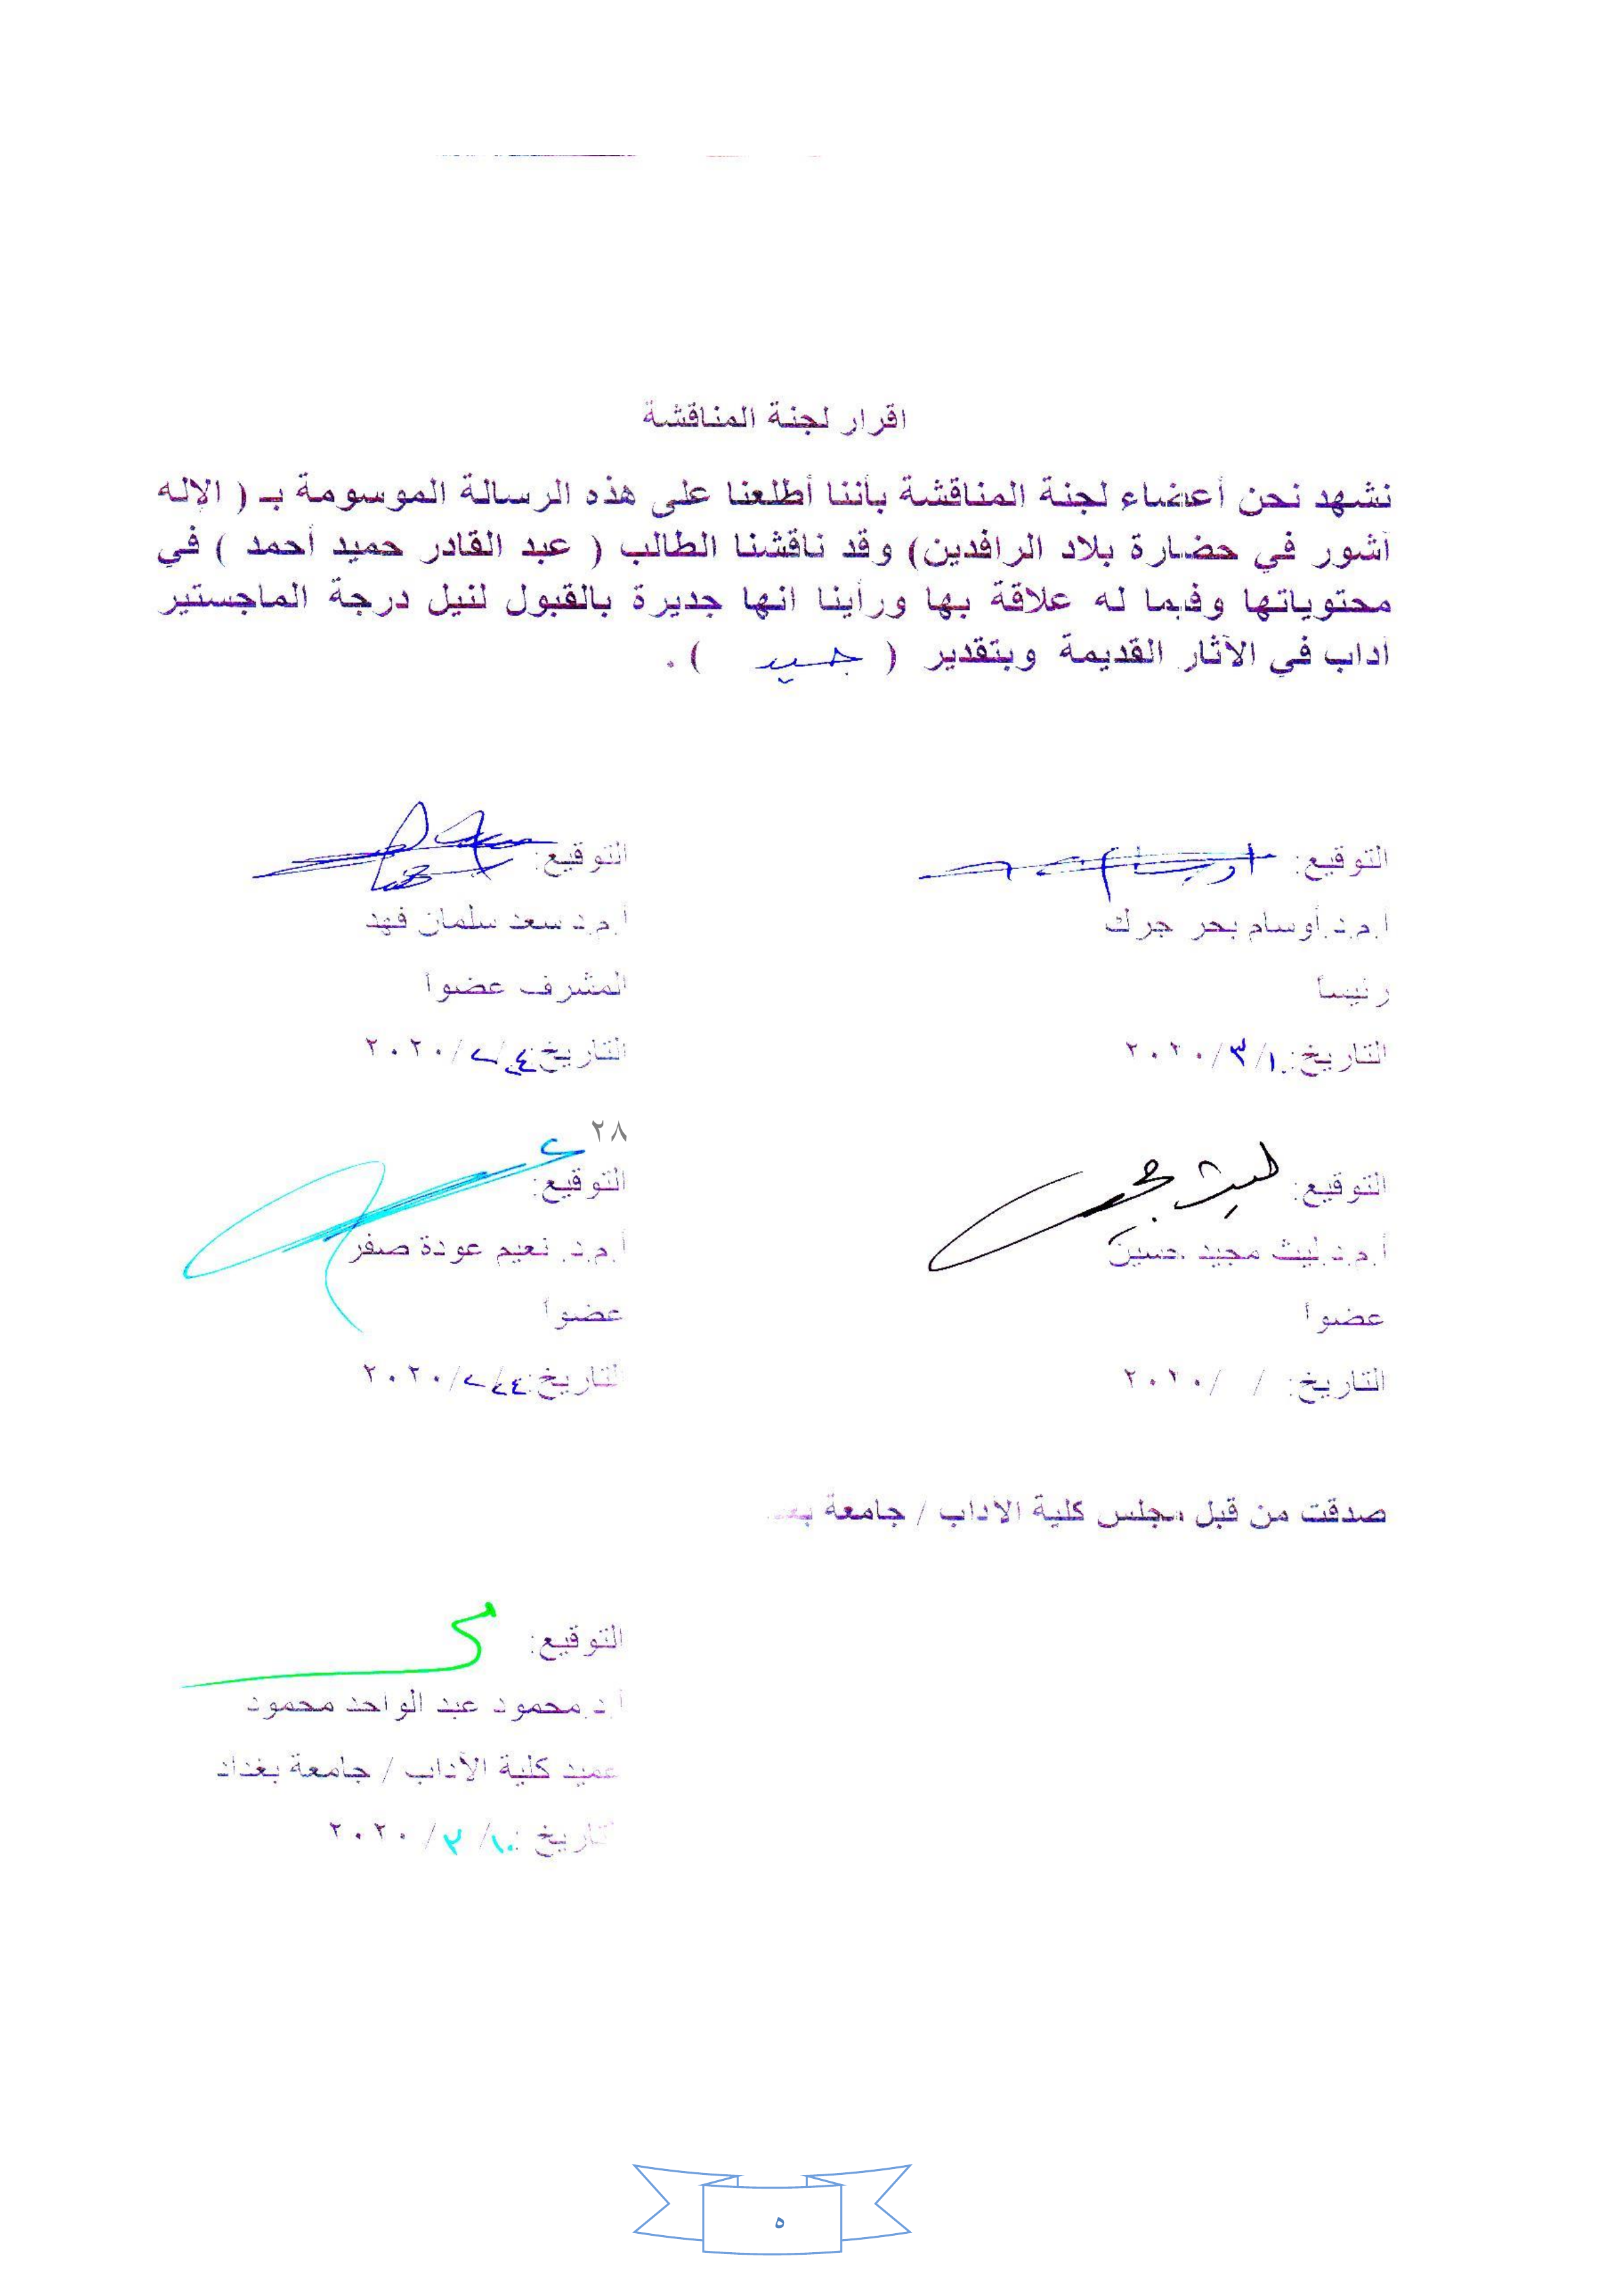 اقرار لجنة المناقشة
نشهد نحن أعضاء لجنة المناقشة بأننا أطلعنا على هذه الرسالة الموسومة بـ ( الإله
آشور في حضارة بلاد الرافدين) وقد ناقشنا الطالب ( عبد القادر حميد أحمد ) في
محتوياتها وفيما له علاقة بها ورأينا انها جديرة بالقبول لنيل درجة الماجستير
آداب في الآثار القديمة وبتقدير ( جيد ) .
التوقيع:
أ.م.د.أوسام بحر جرك
رئيساً
التاريخ: ١/ ٣/ ٢٠٢٠
التوقيع:
أ.م.د سعد سلمان فهد
المشرف عضواً
التاريخ: ٢٠٢٠
٢٨
التوقيع: ليث مجيد
أ.م.د.ليث مجيد حسين
عضواً
التاريخ: / /٢٠٢٠
التوقيع:
أ.م.د. نعيم عودة صفر
عضواً
التاريخ: ٢٠٢٠
صدقت من قبل مجلس كلية الآداب / جامعة
التوقيع:
أ.د.محمود عبد الواحد محمود
عميد كلية الآداب / جامعة بغداد
التاريخ : ١٠/ ٣/ ٢٠٢٠
٥